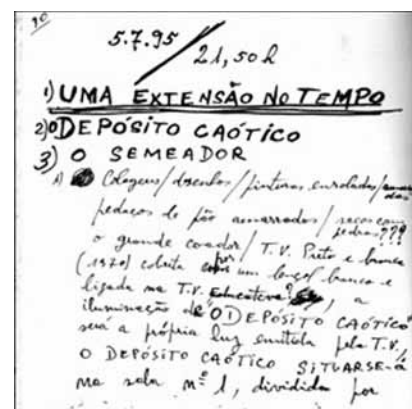 90
5.7.95 / 21,50h
1) UMA EXTENSÃO NO TEMPO
2) O DEPÓSITO CAÓTICO
3) O SEMEADOR
A) Colagens/desenhos/pinturas enroladas/amarradas
pedaços de pão amarrados/sacos com pedras???
o grande coador/T.V. Preto e branco
(1970) coberta por um lençol branco e
ligada na T.V. Educativa?, a
iluminação de "O DEPÓSITO CAÓTICO"
será a própria luz emitida pela T.V./
O DEPÓSITO CAÓTICO SITUARSE-Á
na sala nº 1, dividida por